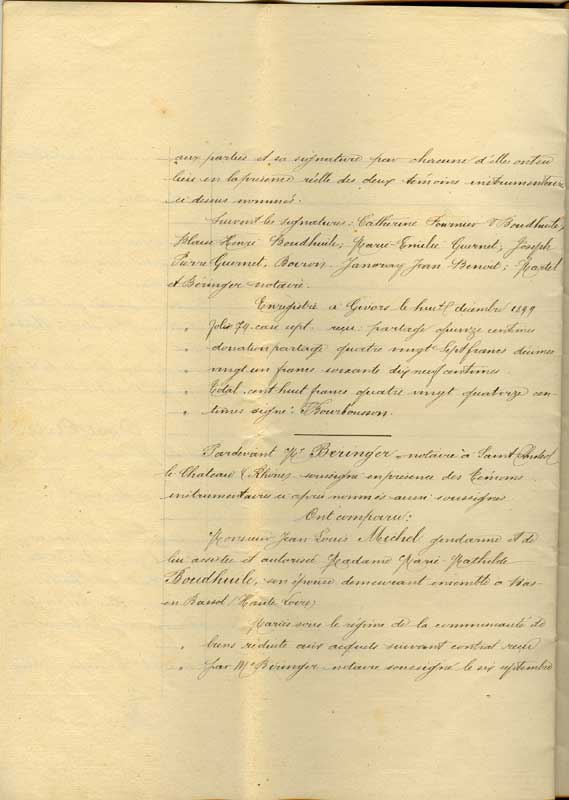 aux parties et sa signature par chacune d'elles ont eu
lieu en la présence réelle des deux témoins instrumentaires
ci dessus nommés.
Suivent les signatures: Catherine Fournier Vve Boudhuile,
Henri Boudhuile, Marie-Emilie Guernet, Joseph
Pierre Guernet, Boiron, Janoray Jean Benoit, Martel
et Béringer notaire.
Enregistré à Givors le huit décembre 1899
" folio 79 case sept, reçu: partage quinze centimes
" donation partage quatre vingt sept francs décimes
" vingt un francs soixante dix neuf centimes.
" Total cent huit francs quatre vingt quatorze cen-
" times signé: Bourbousson.
Pardevant Me Béringer notaire à Saint Andéol
le Château (Rhône) soussigné en présence des témoins
instrumentaires ci après nommés aussi soussignés
Ont comparu:
Monsieur Jean Louis Michel gendarme et de
lui assistée et autorisée Madame Marie-Mathilde
Boudhuile, son épouse demeurant ensemble à Bas-
en Basset (Haute Loire)
Mariés sous le régime de la communauté de
" biens réduite aux acquêts suivant contrat reçu
" par Me Béringer notaire soussigné le six septembre